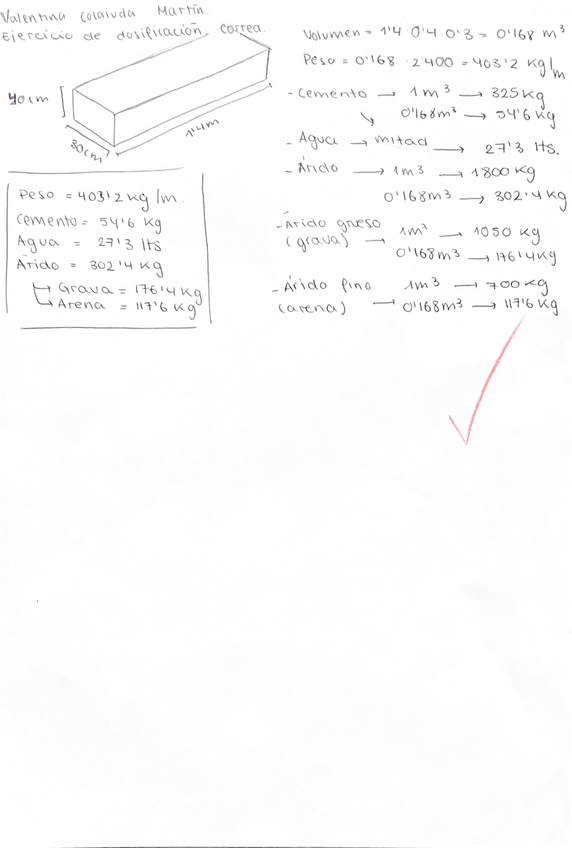 Valentina Colaiuda Martín.
Ejercicio de dosificación, correa.
40cm
30cm
1'4m
Peso = 403'2 kg/m.
Cemento = 54'6 kg
Agua = 27'3 lts
Árido = 302'4 kg
↳ Grava = 176'4 kg
↳ Arena = 117'6 kg
Volumen = 1'4 · 0'4 · 0'3 = 0'168 m³
Peso = 0'168 · 2'400 = 403'2 kg/m
- Cemento → 1m³ → 325kg
0'168m³ → 54'6 kg
- Agua → mitad → 27'3 lts.
- Árido → 1m³ → 1800 kg
0'168m³ → 302'4 kg
- Árido grueso 1m³ → 1050 kg
(grava) → 0'168m³ → 176'4 kg
- Árido fino 1m³ → 700 kg
(arena) → 0'168m³ → 117'6 kg